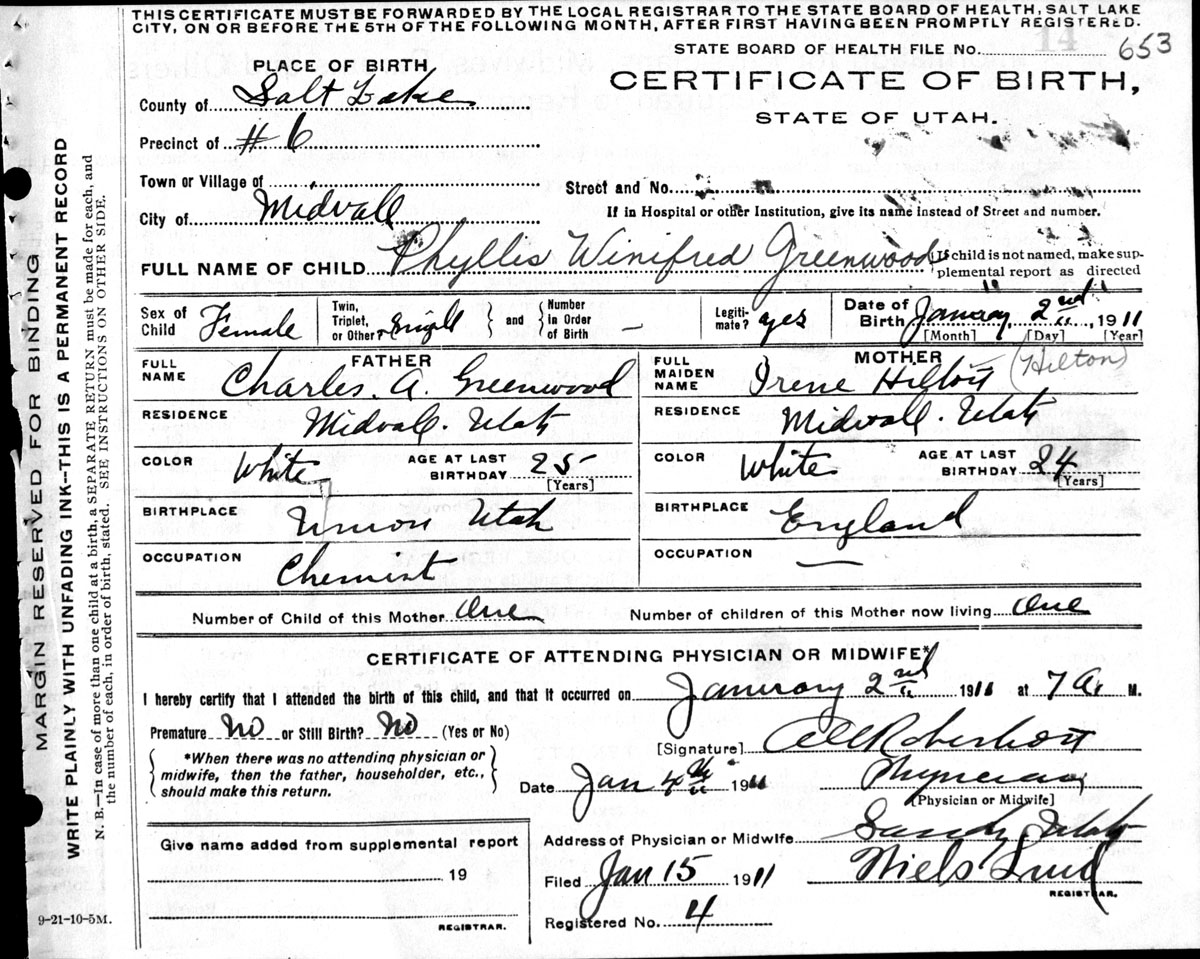 THIS CERTIFICATE MUST BE FORWARDED BY THE LOCAL REGISTRAR TO THE STATE BOARD OF HEALTH, SALT LAKE
CITY, ON OR BEFORE THE 5TH OF THE FOLLOWING MONTH, AFTER FIRST HAVING BEEN PROMPTLY REGISTERED.
STATE BOARD OF HEALTH FILE NO. 653
PLACE OF BIRTH
CERTIFICATE OF BIRTH,
STATE OF UTAH.
County of Salt Lake
Precinct of #6
Town or Village of
Street and No.
City of Midvale
If in Hospital or other Institution, give its name instead of Street and number.
FULL NAME OF CHILD Phyllis Winifred Greenwood
If child is not named, make sup-
plemental report as directed
Sex of Child Female
Twin, Triplet, or Other? Single
and Number in Order of Birth —
Legiti-mate? yes
Date of Birth January 2nd, 1911
[Month] [Day] [Year]
FATHER
FULL NAME Charles. A. Greenwood
RESIDENCE Midvale. Utah
COLOR White AGE AT LAST BIRTHDAY 25 [Years]
BIRTHPLACE Union Utah
OCCUPATION Chemist
MOTHER
FULL MAIDEN NAME Irene Hilton (Hilton)
RESIDENCE Midvale. Utah
COLOR White AGE AT LAST BIRTHDAY 24 [Years]
BIRTHPLACE England
OCCUPATION —
Number of Child of this Mother One Number of children of this Mother now living One
CERTIFICATE OF ATTENDING PHYSICIAN OR MIDWIFE*
I hereby certify that I attended the birth of this child, and that it occurred on January 2nd 1911 at 7 A. M.
Premature No or Still Birth? No (Yes or No)
[Signature] Robertson
*When there was no attending physician or
midwife, then the father, householder, etc.,
should make this return.
Date Jan 4th 1911 Physician
[Physician or Midwife]
Address of Physician or Midwife Sandy Utah
Filed Jan 15 1911 Niels Lind
REGISTRAR.
Registered No. 4
Give name added from supplemental report
19
REGISTRAR.
9-21-10-5M.
MARGIN RESERVED FOR BINDING
WRITE PLAINLY WITH UNFADING INK--THIS IS A PERMANENT RECORD
N. B.—In case of more than one child at a birth, a SEPARATE RETURN must be made for each, and
the number of each, in order of birth, stated. SEE INSTRUCTIONS ON OTHER SIDE.